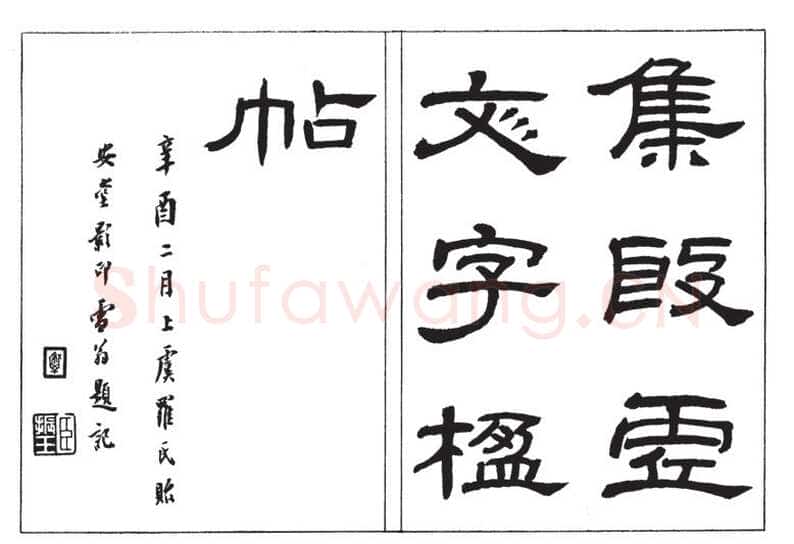 集殷虛
文字楹
帖
辛酉二月上虞羅氏貽
安堂影印雪翁題記
臣振玉
Shufawang.CN